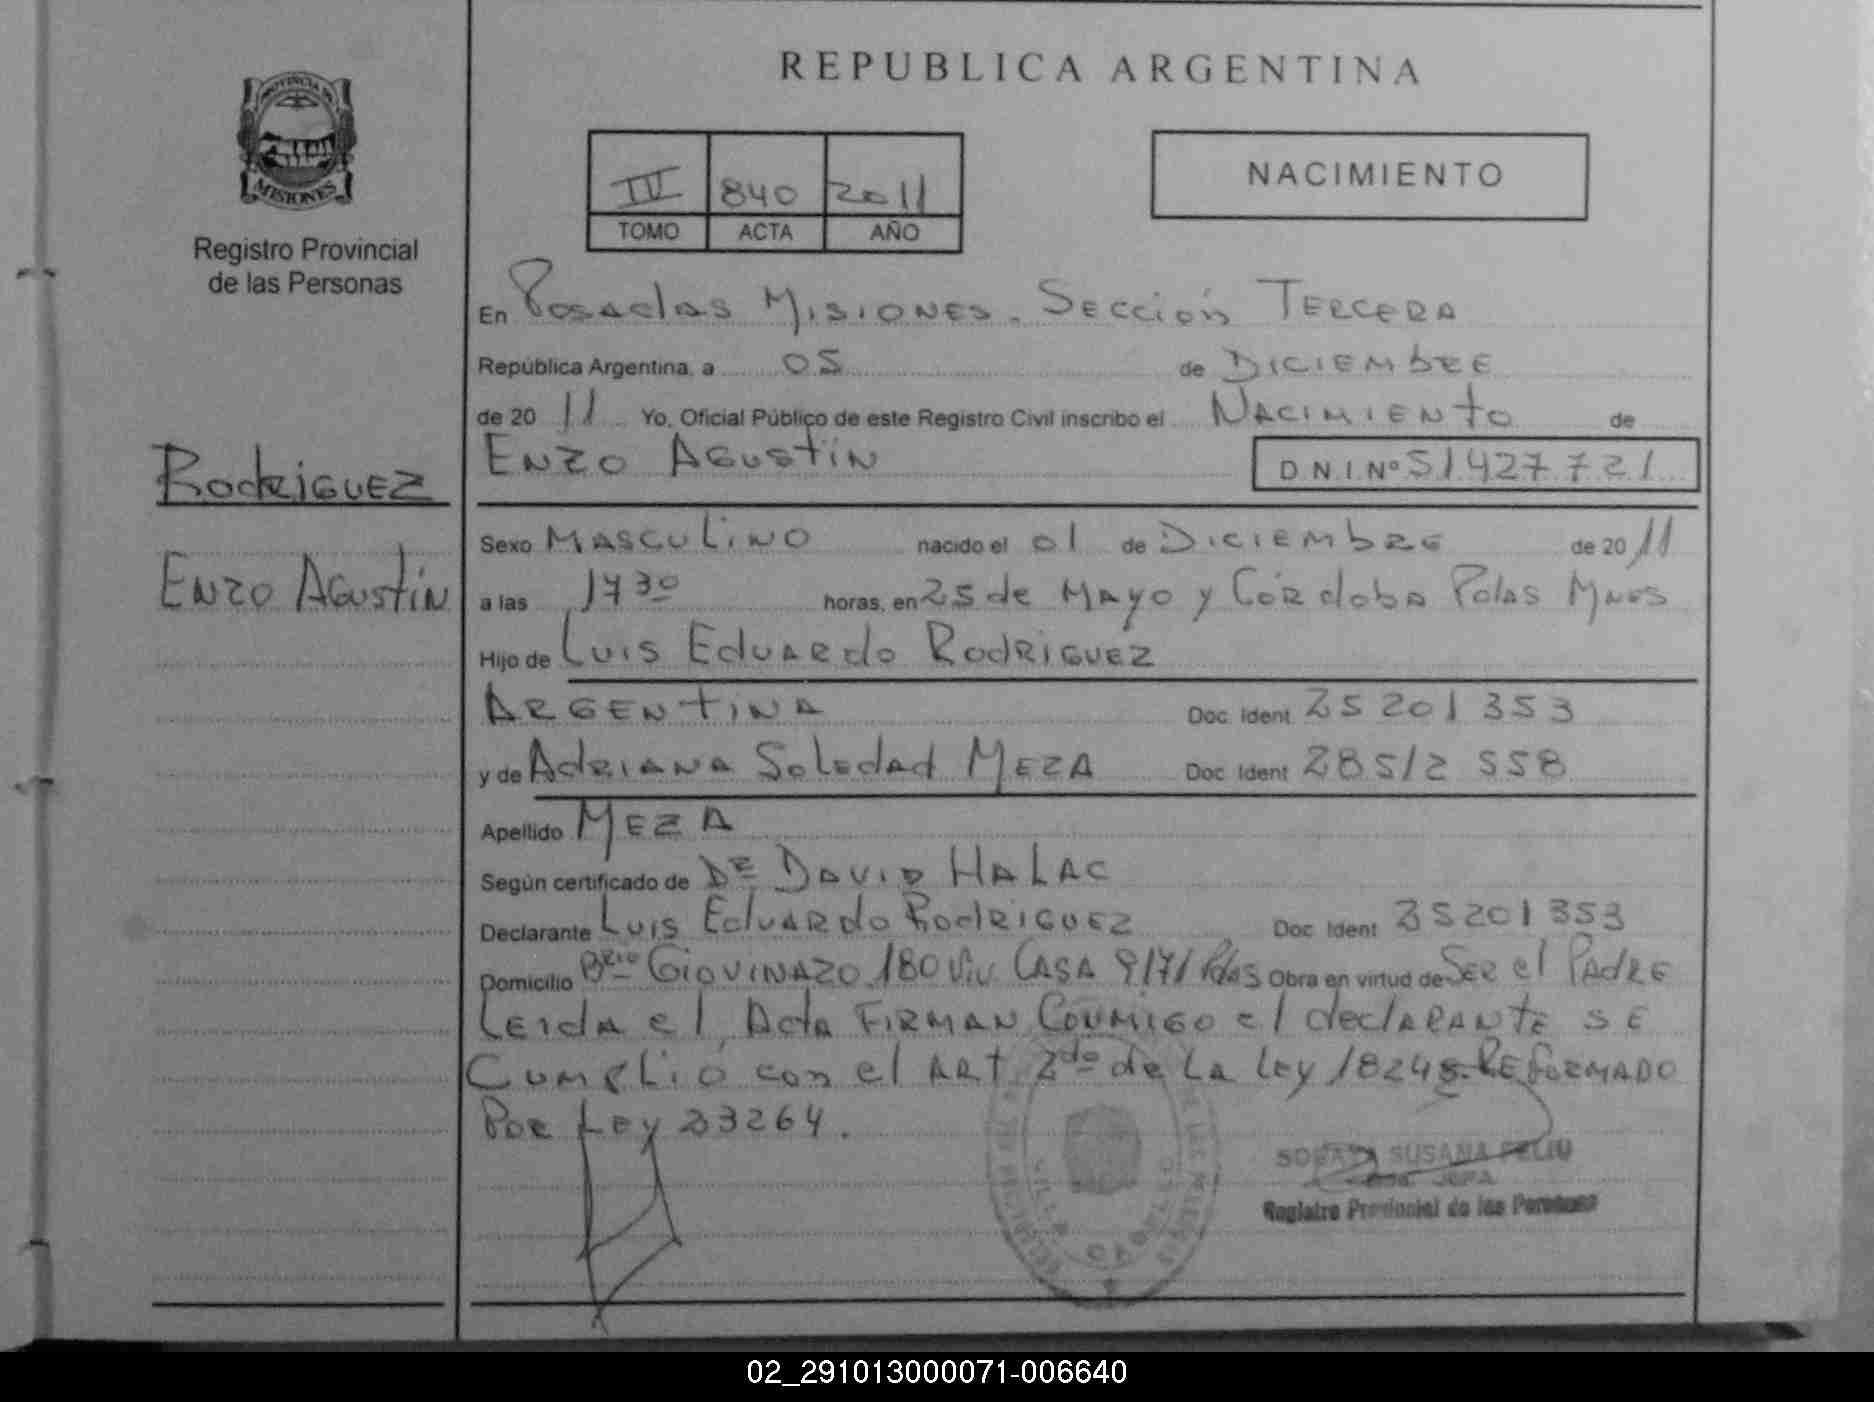 REPUBLICA ARGENTINA
PROVINCIA DE
MISIONES
Registro Provincial
de las Personas
IV 840 2011
TOMO ACTA AÑO
NACIMIENTO
En Posadas Misiones. Sección Tercera
República Argentina, a 05 de Diciembre
de 2011 Yo, Oficial Público de este Registro Civil inscribo el Nacimiento de
Enzo Agustín D.N.I.Nº 51427721
Rodriguez
Enzo Agustín
Sexo Masculino nacido el 01 de Diciembre de 2011
a las 17 30 horas, en 25 de Mayo y Córdoba Pdas Mnes
Hijo de Luis Eduardo Rodriguez
Argentina Doc Ident 25201353
y de Adriana Soledad Meza Doc Ident 28512558
Apellido Meza
Según certificado de Dr David Halac
Declarante Luis Eduardo Rodriguez Doc Ident 25201353
Domicilio Brio Giovinazo 180 Viv Casa 9171 Pdas Obra en virtud de Ser el Padre
Leida el Acta Firman Conmigo el declarante se
Cumplió con el Art 2do de La Ley 18248. Reformado
Por Ley 23264.
SUSANA FELIU
JEFA
Registro Provincial de las Personas
02_291013000071-006640